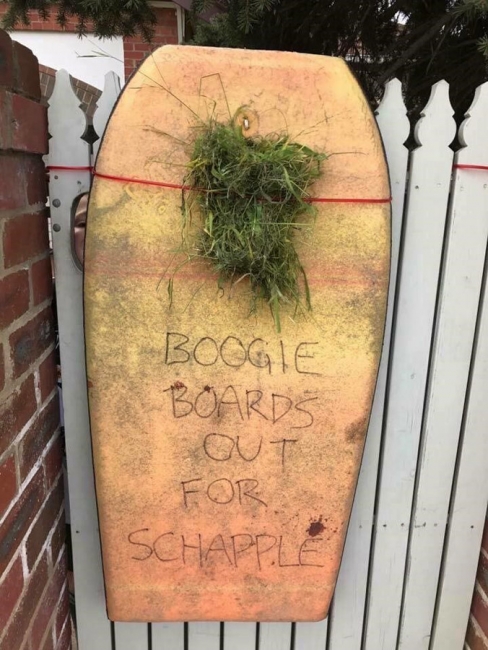 BOOGIE
BOARDS
OUT
FOR
SCHAPPLE